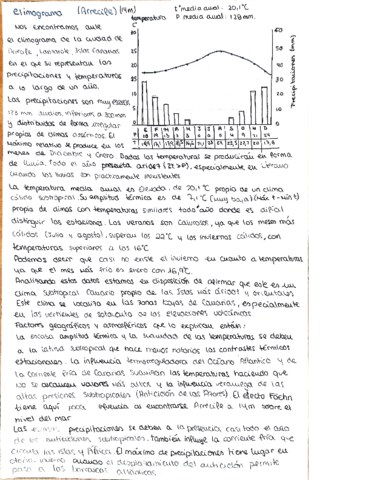 Climograma (Arrecife) (14m)
Tª media anual: 20,1ºC
P media anual: 128 mm.
temperatura
Precipitaciones (mm)
Nos encontramos ante
el climograma de la ciudad de
Arrecife, Lanzarote, Islas Canarias
en el que se representan las
precipitaciones y temperaturas
a lo largo de un año.
Las precipitaciones son muy escasas
128 mm anuales, inferiores a 300mm
y distribuidas de forma irregular
propias de climas desérticos. El
máximo relativo se produce en los
meses de Diciembre y Enero. Dadas las temperaturas se producirán en forma
de lluvia. Todo el año presenta aridez (2t>P), especialmente en verano
cuando las lluvias son prácticamente inexistentes
La temperatura media anual es elevada, de 20,1ºC propia de un clima
cálido subtropical. Su amplitud térmica es de 7,1ºC (muy baja) (máx t - mín t)
propia de climas con temperaturas similares todo el año donde es difícil
distinguir las estaciones. Los veranos son calurosos, ya que los meses más
cálidos (julio y agosto) superan los 22ºC y los inviernos cálidos, con
temperaturas superiores a los 16ºC
Podemos decir que casi no existe el invierno en cuanto a temperaturas
ya que el mes más frío es enero con 16,9ºC.
Analizando estos datos estamos en disposición de afirmar que este es un
clima subtropical Canario propio de las Islas más áridas y orientales
Este clima se localiza en las zonas bajas de Canarias, especialmente
en las vertientes de sotavento de las elevaciones volcánicas
Factores geográficos y atmosféricos que lo explican están:
La escasa amplitud térmica y la suavidad de las temperaturas se deben
a la latitud subtropical que hace menos notorios los contrastes térmicos
estacionales. La influencia termorreguladora del Océano Atlántico y de
la corriente fría de Canarias suavizan las temperaturas haciendo que
no se alcancen valores más altos y la influencia veraniega de las
altas presiones subtropicales (Anticiclón de las Azores). El efecto Föehn
tiene aquí poca influencia al encontrarse Arrecife a 14m sobre el
nivel del mar
Las escasas precipitaciones se deben a la presencia casi todo el año
de los anticiclones subtropicales. También influye la corriente fría que
circula las islas y África. El máximo de precipitaciones tiene lugar en
otoño, invierno cuando el desplazamiento del anticiclón permite
paso a las borrascas atlánticas